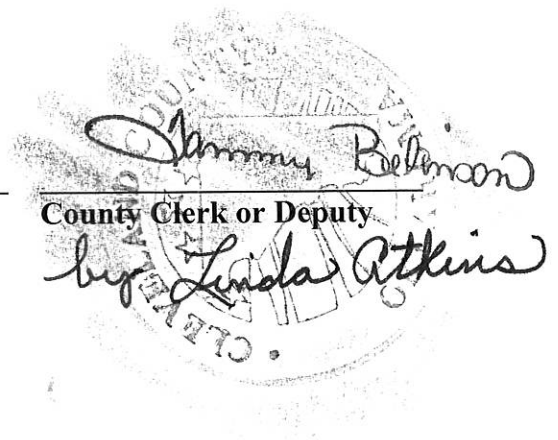 Tammy Belinson
County Clerk or Deputy
by Linda Atkins
CLEVELAND COUNTY